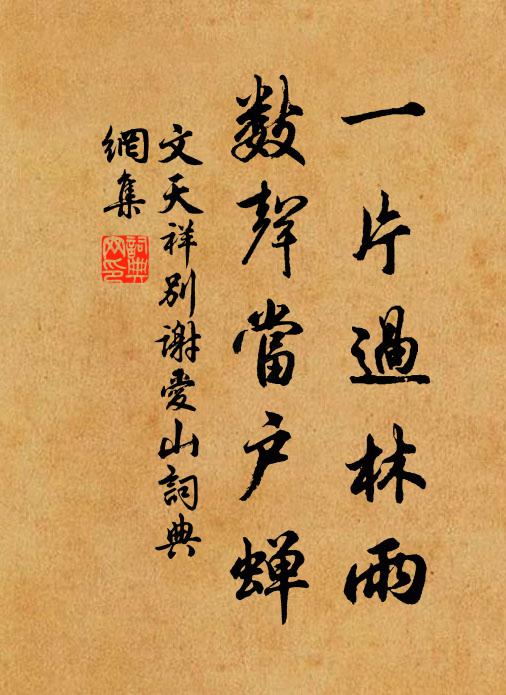 一片過林雨
數聲當户蟬
文天祥别謝愛山詞典
網集
詞典
网印